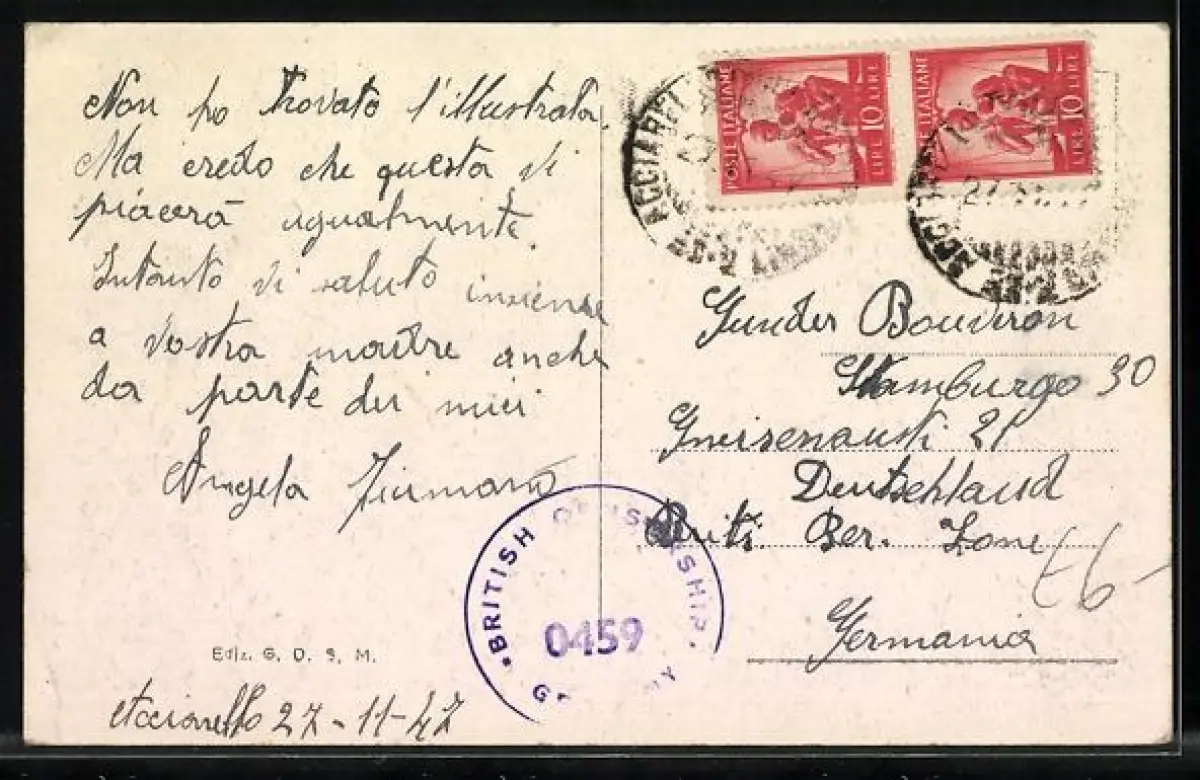 Non ho trovato l'illustrata.
Ma credo che questa vi
piacerà ugualmente.
Intanto vi saluto insieme
a vostra madre anche
da parte dei miei
Angela
Ediz. G. D. S. M.
27-11-47
POSTE ITALIANE
LIRE 10 LIRE
POSTE ITALIANE
LIRE 10 LIRE
Gunder Bouveron
Hamburgo 30
Gneisenaustr 21
Deutschland
Briti. Ber. Zone
Germania
BRITISH CENSORSHIP
0459